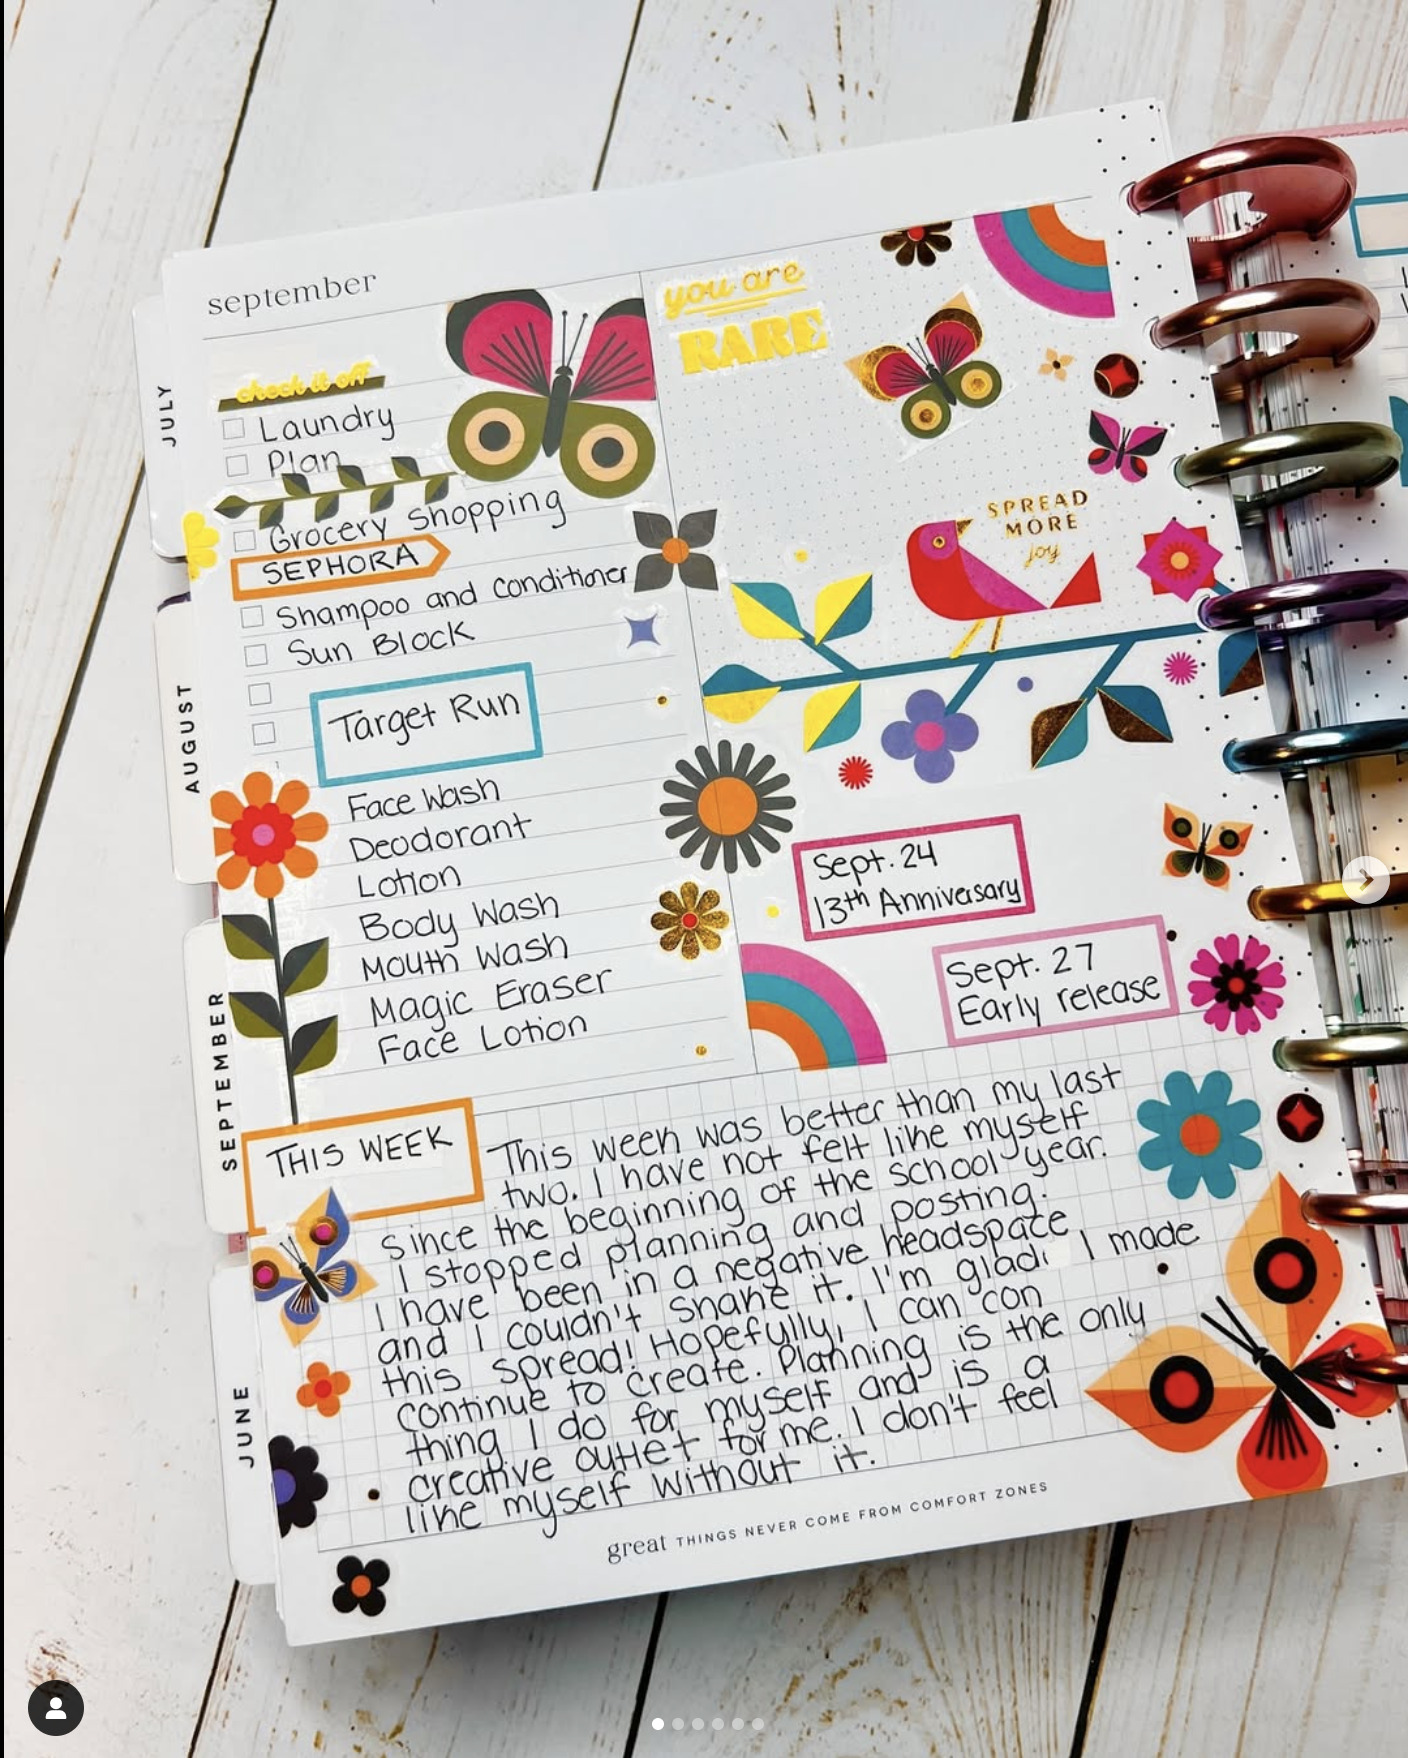 september
check it off
Laundry
Plan
Grocery Shopping
SEPHORA
Shampoo and Conditioner
Sun Block
Target Run
Face Wash
Deodorant
Lotion
Body Wash
Mouth Wash
Magic Eraser
Face Lotion
you are
RARE
SPREAD
MORE
joy
Sept. 24
13th Anniversary
Sept. 27
Early release
THIS WEEK
This week was better than my last
two. I have not felt like myself
since the beginning of the school year.
I stopped planning and posting.
I have been in a negative headspace
and I couldn't shake it. I'm glad I made
this spread! Hopefully, I can con
continue to create. Planning is the only
thing I do for myself and is a
creative outlet for me. I don't feel
like myself without it.
great THINGS NEVER COME FROM COMFORT ZONES
JULY
AUGUST
SEPTEMBER
JUNE